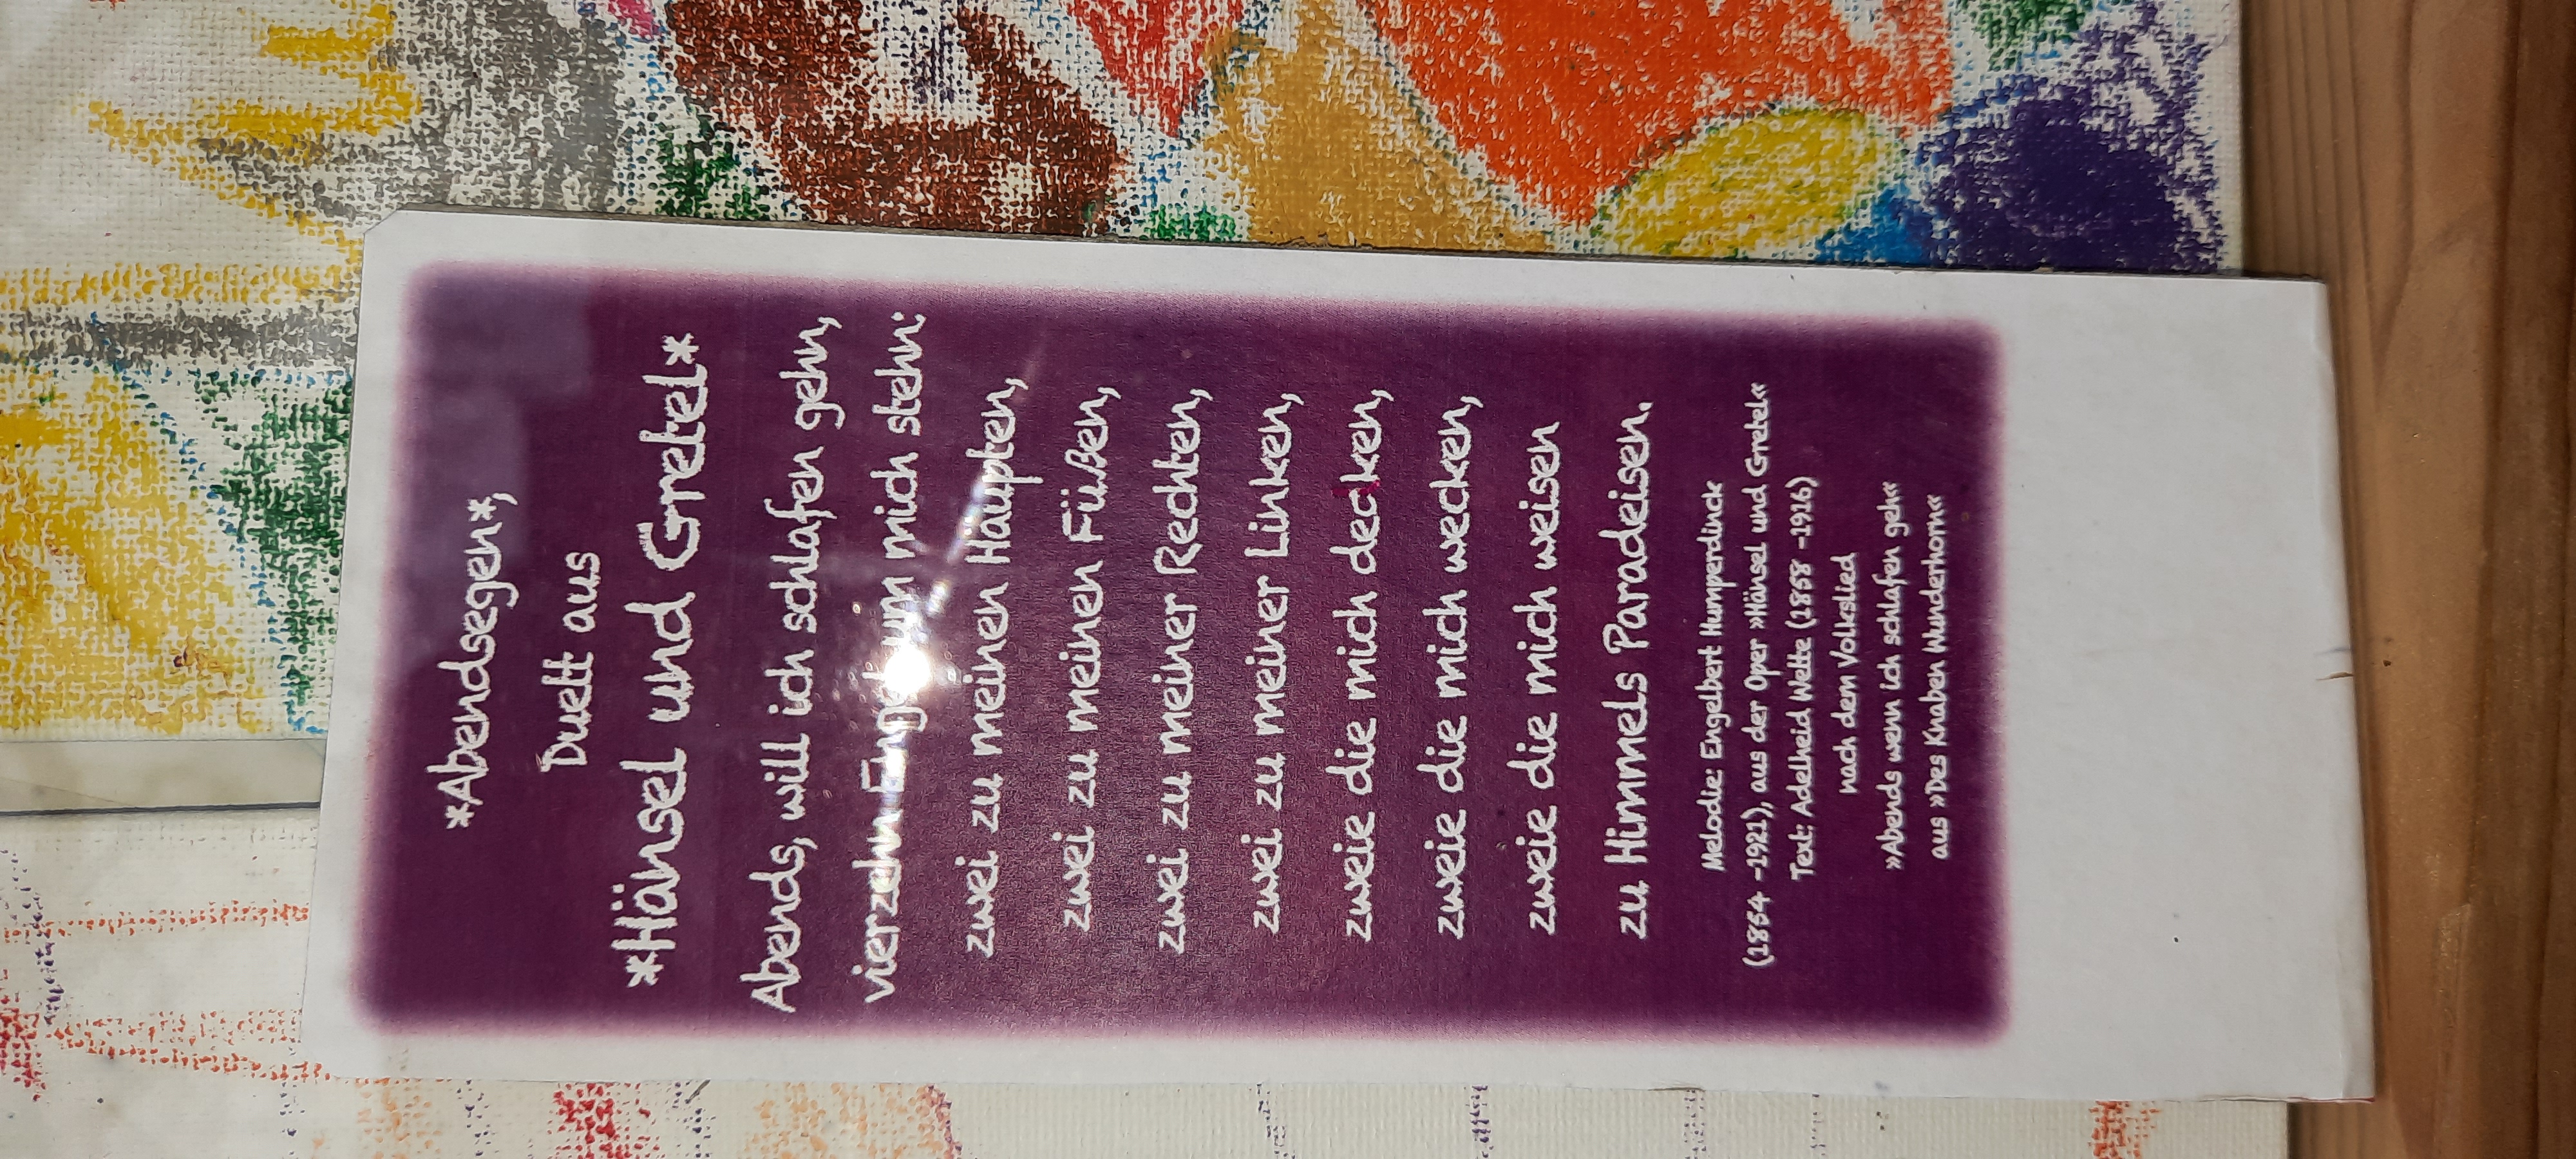 *Abendsegen*,
Duett aus
*Hänsel und Gretel*
Abends, will ich schlafen gehn,
vierzehn Engel um mich stehn:
zwei zu meinen Häupten,
zwei zu meinen Füßen,
zwei zu meiner Rechten,
zwei zu meiner Linken,
zweie die mich decken,
zweie die mich wecken,
zweie die mich weisen
zu Himmels Paradeisen.
Melodie: Engelbert Humperdinck
(1854 -1921), aus der Oper »Hänsel und Gretel«
Text: Adelheid Wette (1858 -1916)
nach dem Volkslied
»Abends wenn ich schlafen geh«
aus »Des Knaben Wunderhorn«